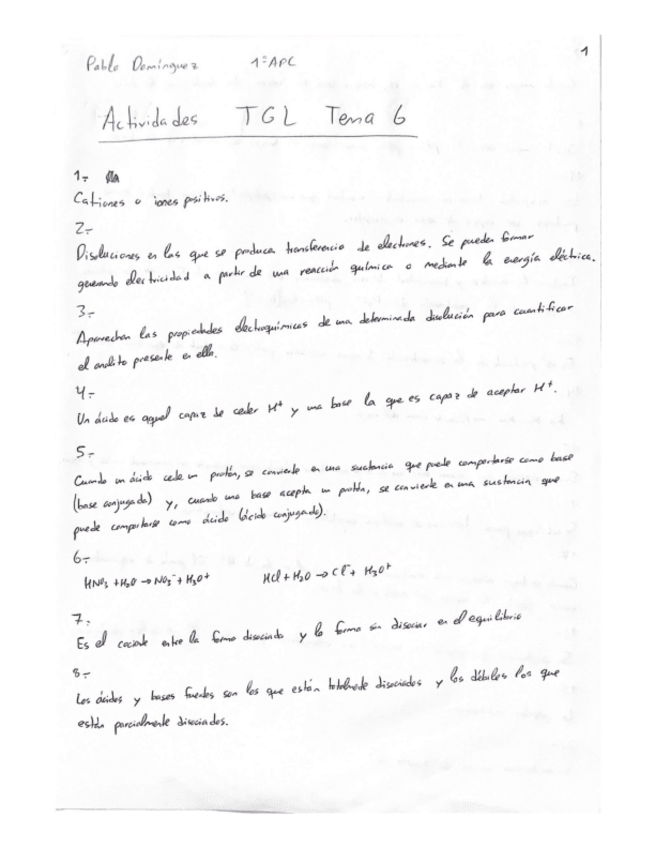 1
Pablo Domínguez 1º APC
Actividades TGL Tema 6
1.-
Cationes o iones positivos.
2.-
Disoluciones en las que se produce transferencia de electrones. Se pueden formar
generando electricidad a partir de una reacción química o mediante la energía eléctrica.
3.-
Aprovechan las propiedades electroquímicas de una determinada disolución para cuantificar
el analito presente en ella.
4.-
Un ácido es aquel capaz de ceder H⁺ y una base la que es capaz de aceptar H⁺.
5.-
Cuando un ácido cede un protón, se convierte en una sustancia que puede comportarse como base
(base conjugada) y, cuando una base acepta un protón, se convierte en una sustancia que
puede comportarse como ácido (ácido conjugado).
6.-
HNO₃ + H₂O → NO₃⁻ + H₃O⁺ HCl + H₂O → Cl⁻ + H₃O⁺
7.-
Es el cociente entre la forma disociada y la forma sin disociar en el equilibrio
8.-
Los ácidos y bases fuertes son los que están totalmente disociados y los débiles los que
están parcialmente disociados.